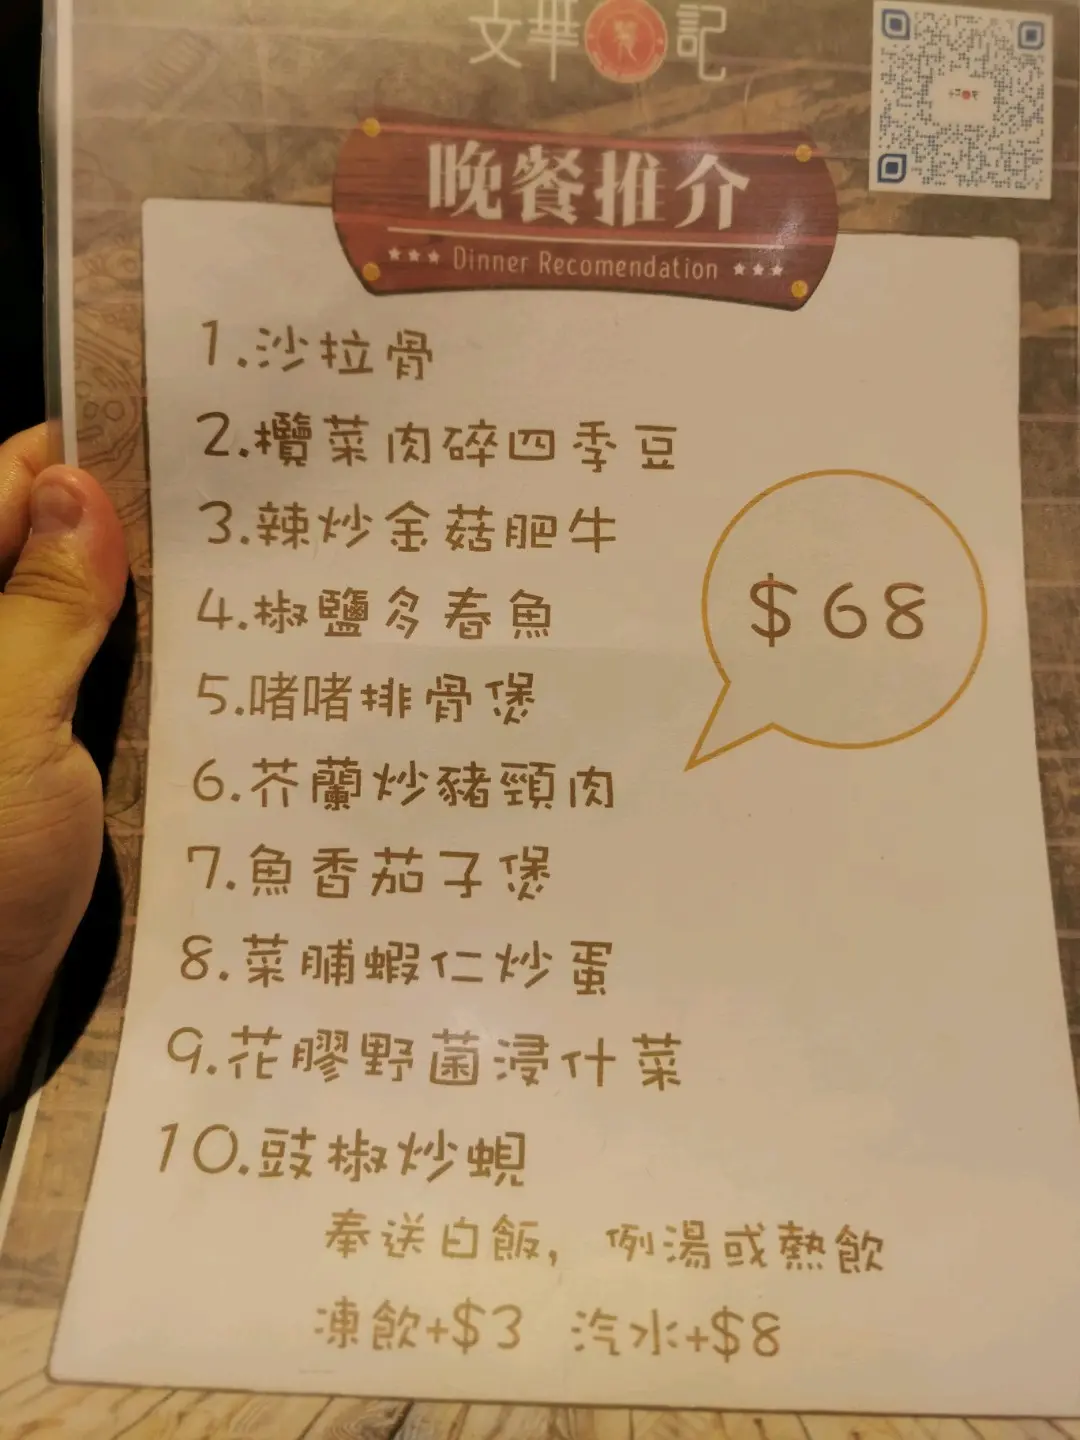 文華冰記
晚餐推介
Dinner Recomendation
1.沙拉骨
2.欖菜肉碎四季豆
3.辣炒金菇肥牛
4.椒鹽多春魚
$68
5.啫啫排骨煲
6.芥蘭炒豬頸肉
7.魚香茄子煲
8.菜脯蝦仁炒蛋
9.花膠野菌浸什菜
10.豉椒炒蜆
奉送白飯，例湯或熱飲
凍飲+$3 汽水+$8